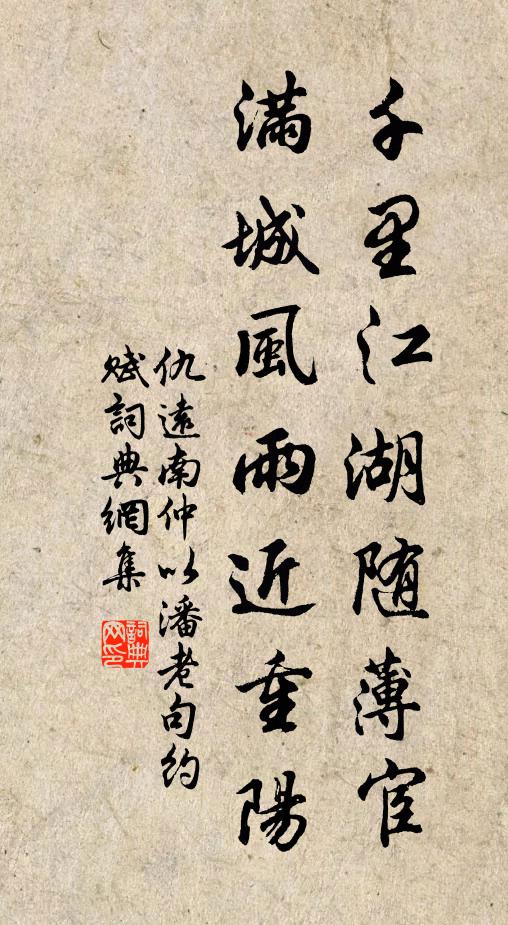 千里江湖随薄宦
滿城風雨近重陽
仇遠南仲以潘老句約
赋詞典網集
詞典網印